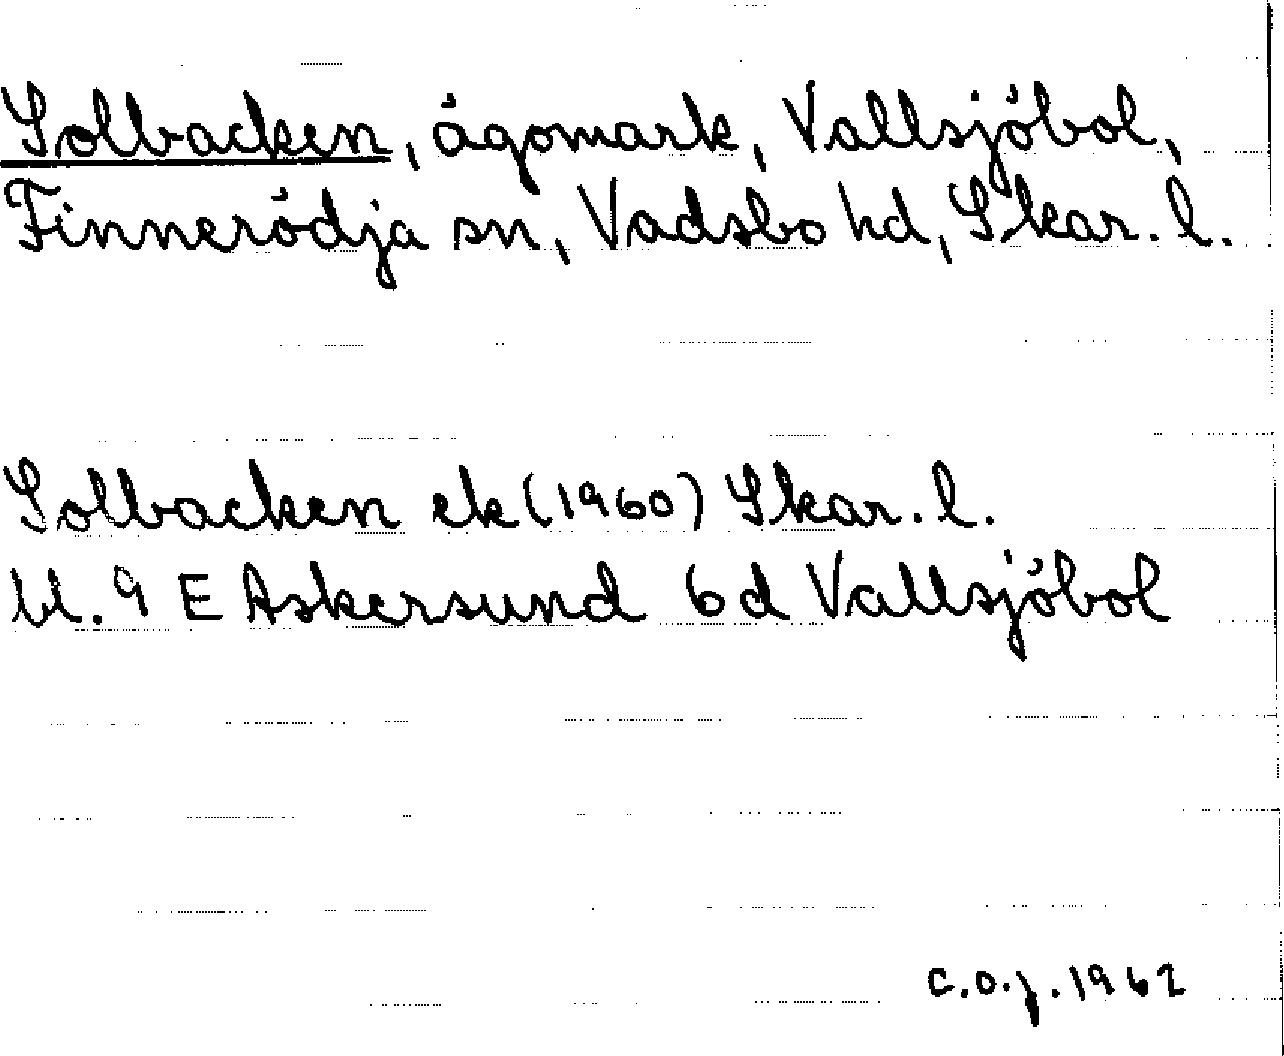 Solbacken, ägomark, Vallsjöbol,
Finnerödja sn, Vadsbo hd, Skar. l.
Solbacken ek (1960) Skar. l.
bl. 9 E Askersund 6d Vallsjöbol
C.O.J. 1962